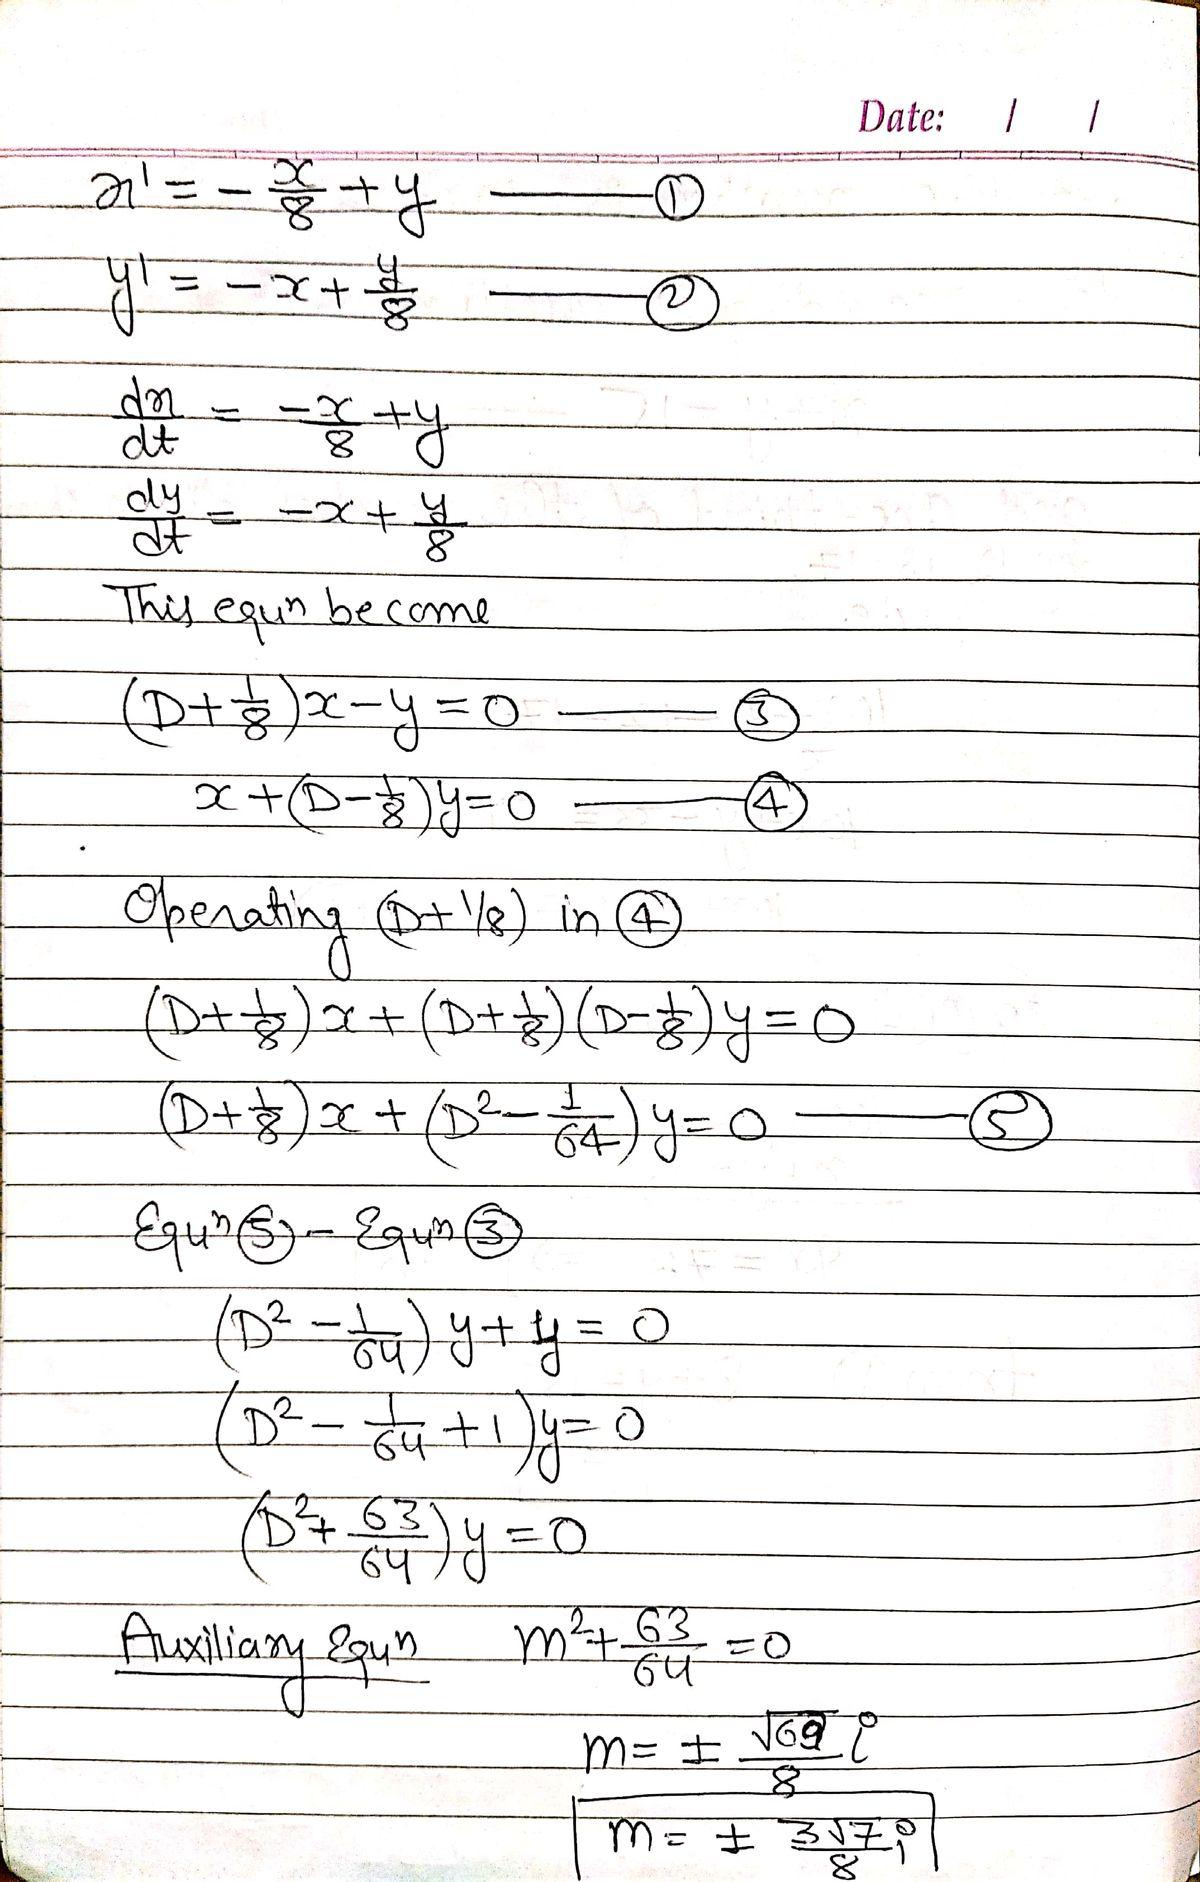 Date: / /
x' = - x/8 + y ——— ①
y' = - x + y/8 ——— ②
dx/dt = -x/8 + y
dy/dt = -x + y/8
This equn become
(D + 1/8)x - y = 0 ——— ③
x + (D - 1/8)y = 0 ——— ④
Operating (D + 1/8) in ④
(D + 1/8)x + (D + 1/8)(D - 1/8)y = 0
(D + 1/8)x + (D² - 1/64)y = 0 ——— ⑤
Equn ⑤ - Equn ③
(D² - 1/64)y + y = 0
(D² - 1/64 + 1)y = 0
(D² + 63/64)y = 0
Auxiliary Equn m² + 63/64 = 0
m = ± 3√7/8 i